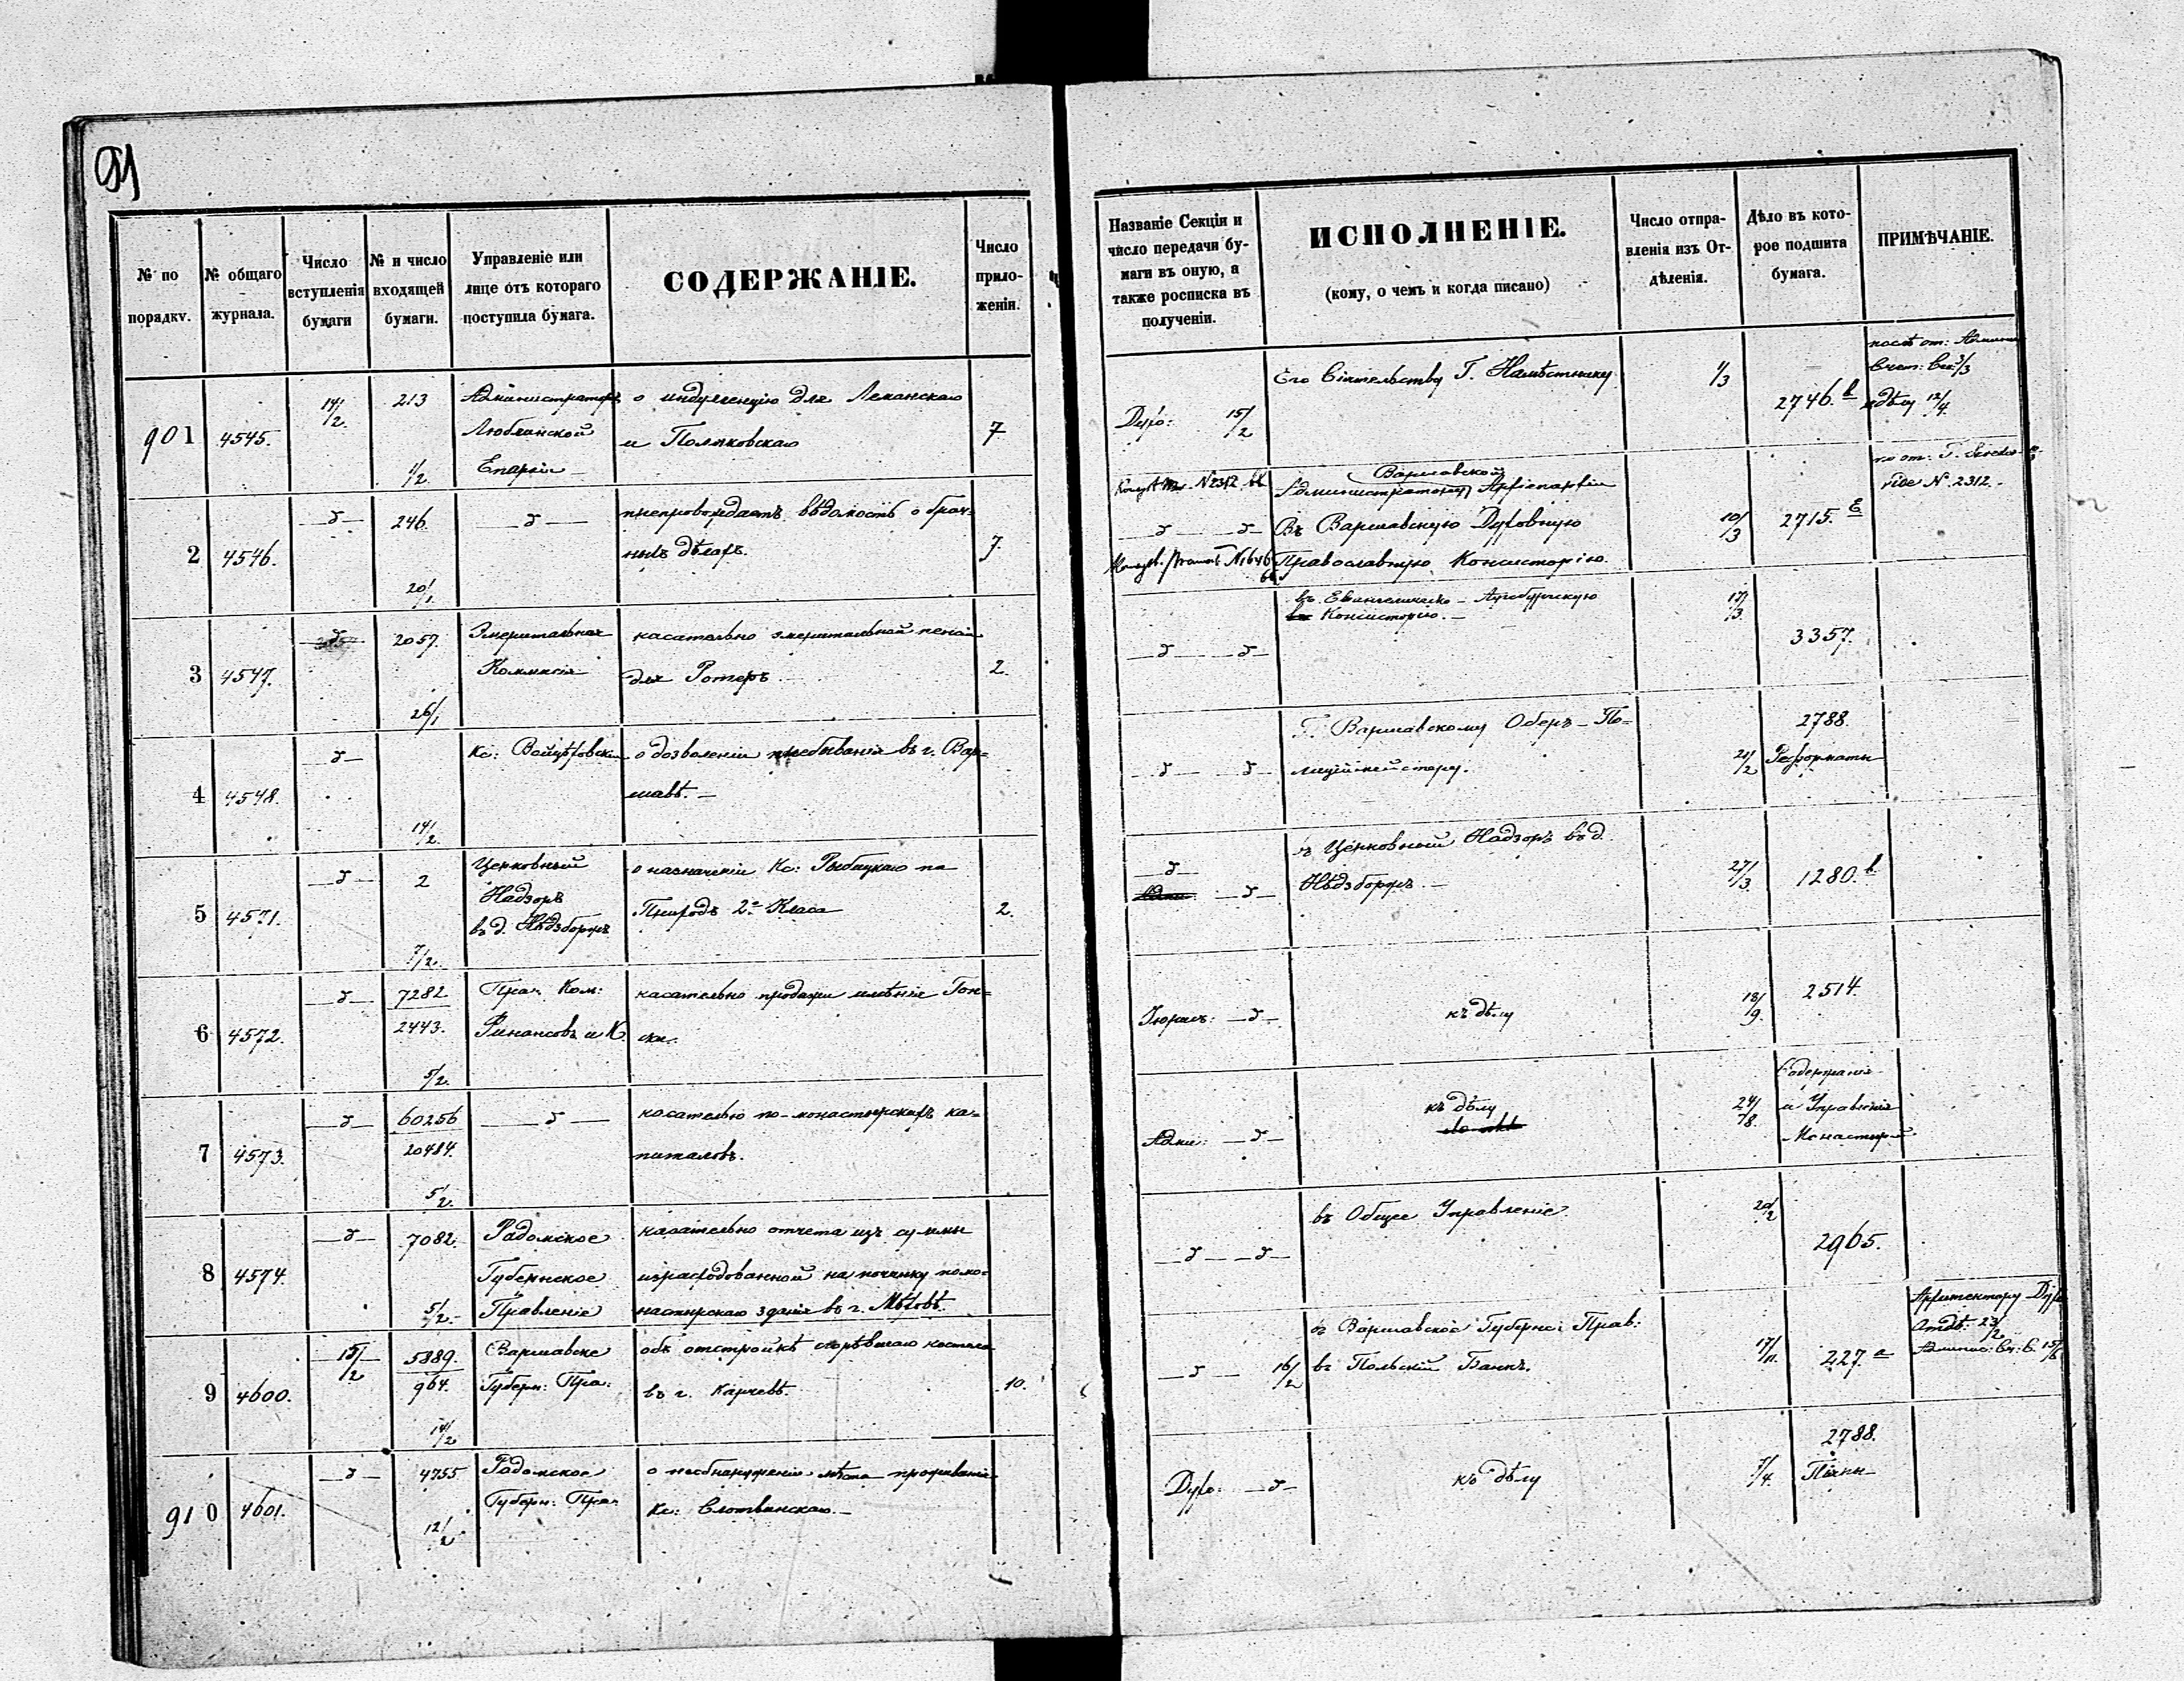 91
№ по порядку.
№ общаго журнала.
Число вступленія бумаги
№ и число входящей бумаги.
Управленіе или лице отъ котораго поступила бумага.
СОДЕРЖАНІЕ.
Число прило-женій.
Названіе Секціи и число передачи бу-маги въ оную, а также росписка въ полученіи.
ИСПОЛНЕНІЕ.
(кому, о чемъ и когда писано)
Число отпра-вленія изъ От-дѣленія.
Дѣло въ кото-рое подшита бумага.
ПРИМѢЧАНІЕ.
901 4545. 14/2. 213 1/2.
Администраторъ
Люблинской
Епархіи
о индулгенцію для Леканскаго
и Полтковскаго
7
Духо: 15/2
Его Сіятельству Г. Намѣстнику
1/3
2746. b
къ дѣлу 12/4.
2 4546. 246. 20/1.
препровождаетъ вѣдомость о брач=
ныхъ дѣлахъ.
7.
№ 2312
Варшавской
Администратору Архіепархіи
Въ Варшавскую Духовную
Православную Консисторію.
10/3
2715. E
vide № 2312.
3 4547. 2057. 26/1
Эмеритальная
Коммисія
касательно эмеритальной пенсіи
для Ротеръ
2.
въ Евангелическо-Аугсбургскую
Консисторію.
17/3.
3357.
4 4548. 14/2.
Кс: Войцѣховски
о дозволеніи пребыванія въ г. Вар=
шавѣ.
Г. Варшавскому Оберъ-По=
лицеймейстеру.
21/2
2788.
Реформаты
5 4571. 2 7/2.
Церковный
Надзоръ
въ д. Нѣдзборжъ
о назначеніи Кс: Рыбицкаго на
Приходъ 2го Класа
2.
въ Церковный Надзоръ въ д.
Нѣдзборжъ.
27/3.
1280. b
6 4572. 7282 2443. 5/2.
Прав. Ком:
Финансовъ и К.
касательно продажи имѣнія Гон=
ска.
Юрис:
къ дѣлу
18/9.
2514.
7 4573. 60256 20484. 5/2.
касательно по-монастырскихъ ка=
питаловъ.
Адми:
къ дѣлу
24/8.
Содержанія
и Управленія
Монастырей
8 4574. 7082. 5/2.
Радомское
Губернское
Правленіе
касательно отчета изъ суммы
израсходованной на починку помо=
настырскаго зданія въ г. Мѣховѣ.
въ Общее Управленіе.
20/2
2965.
9 4600. 15/2 5889. 964. 14/2
Варшавске
Губерн: Пра:
объ отстройкѣ сгорѣвшаго костела
въ г. Карчевѣ.
10.
16/2
въ Варшавское Губернс: Прав:
въ Польскій Банкъ.
17/11.
227. a
Архитектору Духо
Отдѣ: 23/2
910 4601. 4755 12/2
Радомское
Губерн: Прав
о необнаруженіи мѣста проживанія
Кс: Слотвинскаго.
Духо:
къ дѣлу
7/4.
2788.
Піяры